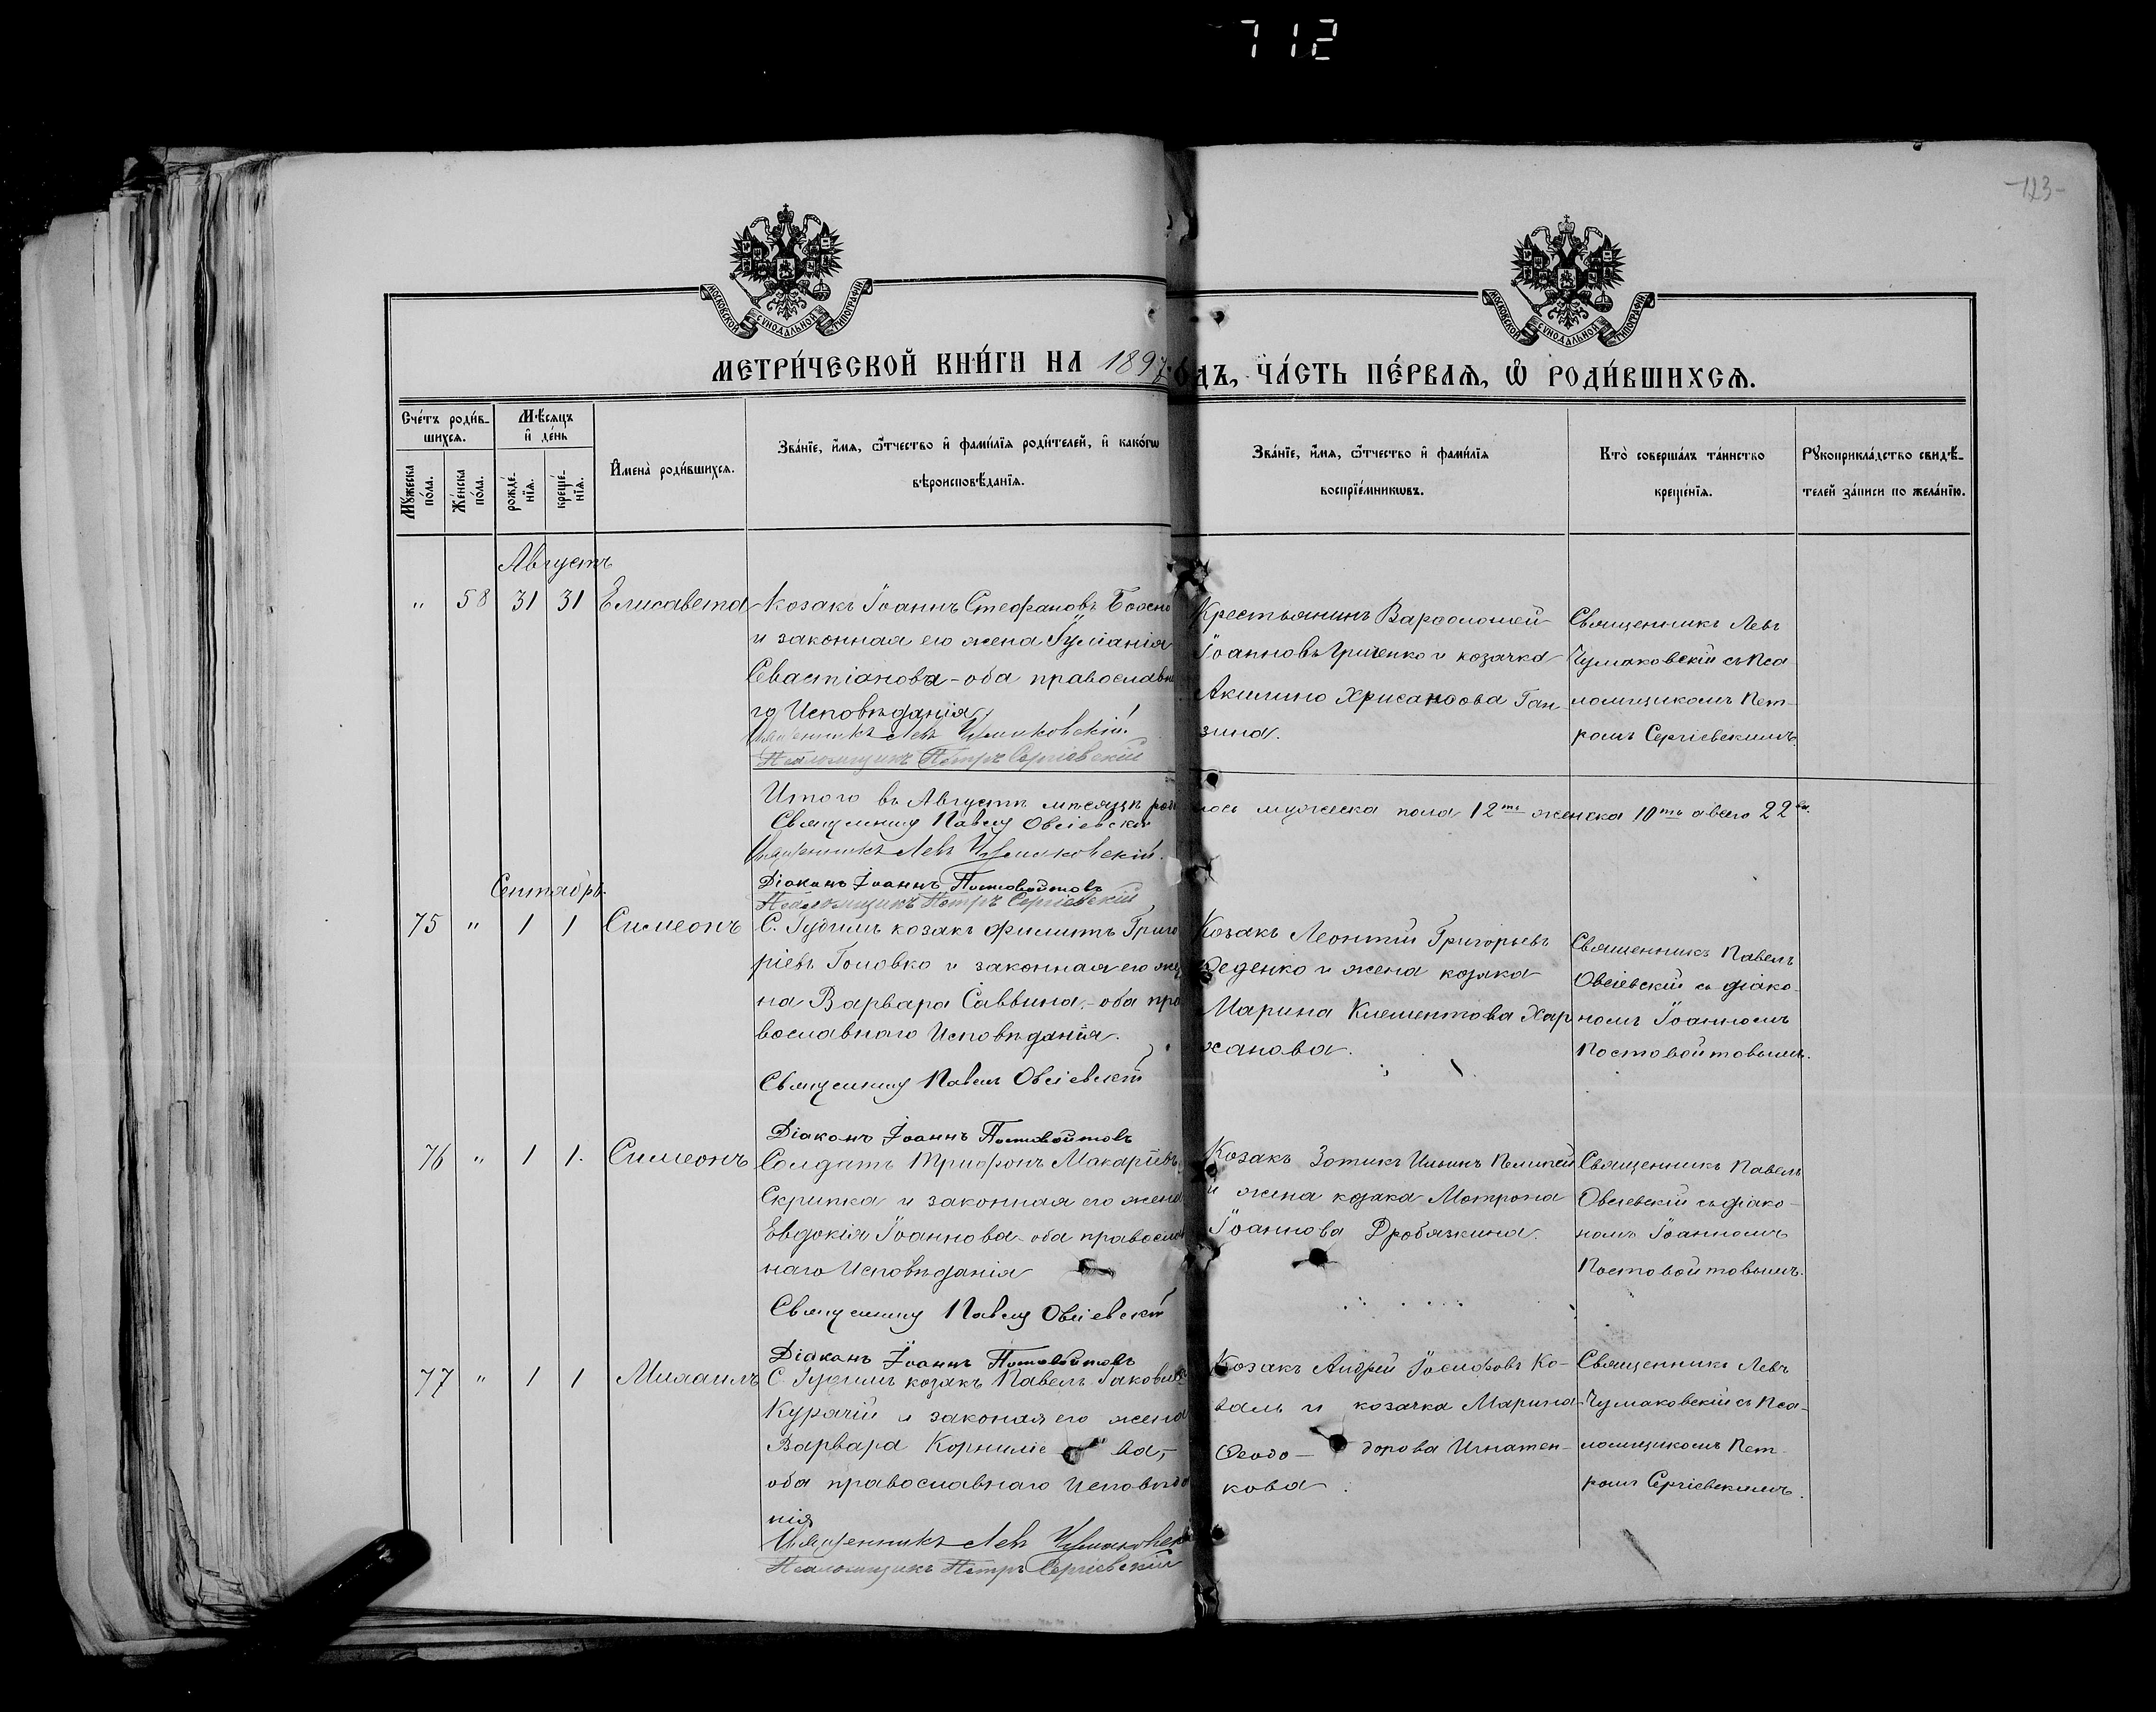 712
-123-
МОСКОВСКОЙ СУНОДАЛЬНОЙ ТИПОГРАФІИ
МОСКОВСКОЙ СУНОДАЛЬНОЙ ТИПОГРАФІИ
МЕТРИ́ЧЕСКОЙ КНИ́ГИ НА 1897 го́дъ, ча́сть пе́рваѧ, ѡ҆ роди́вшихсѧ.
Сче́тъ роди́в-
шихсѧ.
Мѣ́сѧцъ
и҆ де́нь
Мꙋ́жеска
по́ла.
Же́нска
по́ла.
рожде́-
нїѧ.
креще́-
нїѧ.
И҆мена̀ роди́вшихсѧ.
Зва́нїе, и҆́мѧ, ѻ҆́тчество и҆ фами́лїѧ роди́телей, и҆ како́гѡ
вѣроисповѣ́данїѧ.
Зва́нїе, и҆́мѧ, ѻ҆́тчество и҆ фами́лїѧ
воспрїе́мникѡвъ.
Кто̀ соверша́лъ та́инство
креще́нїѧ.
Рꙋкоприкла́дство свидѣ́-
телей за́писи по жела́нїю.
Августъ
" 58 31 31 Елисавета
Козакъ Іоаннъ Стефановъ
и законная его жена
Севастіанова - оба православна
го Исповѣданія
Священникъ Левъ Чумаковскій.
Псаломщикъ Петръ Сергіевскій
Крестьянинъ Варѳоломей
Іоанновъ Гриценко и козачка
Акилина Хрисанѳова Ган
зина.
Священникъ Левъ
Чумаковскій съ Пса
ломщикомъ Пет-
ромъ Сергіевскимъ.
Итого въ Августѣ мѣсяцѣ роди лось мужеска пола 12ть женска 10ть а всего 22
Священникъ Павелъ Овсіевскій
Священникъ Левъ Чумаковскій.
Діаконъ Іоаннъ Постовойтовъ
Псаломщикъ Петръ Сергіевскій
Сентябрь.
75 " 1 1 Симеонъ
С. Гудимъ козакъ Филиппъ Григо
ріевъ Головко и законная его же
на Варвара Саввина, - оба пра
вославнаго Исповѣданія.
Священникъ Павелъ Овсіевскій
Діаконъ Іоаннъ Постовойтовъ
Козакъ Леонтій Григорьевъ
и жена козака
Марина Климентова Хар
ханова.
Священникъ Павелъ
Овсіевскій съ діако-
номъ Іоанномъ
Постовойтовымъ.
76 " 1 1. Симеонъ
Солдатъ Трифонъ Макаріевъ
Скрипка и законная его жена
Евдокія Іоаннова - оба православ
наго Исповѣданія
Священникъ Павелъ Овсіевскій
Діаконъ Іоаннъ Постовойтовъ
Козакъ Зотикъ Ильинъ
и жена козака Матрона
Іоаннова Дробязкина.
Священникъ Павелъ
Овсіевскій съ діако-
номъ Іоанномъ
Постовойтовымъ.
77 " 1 1 Михаилъ
С. Гудимъ козакъ Павелъ Іаковлев
Курячій и законая его жена
Варвара Корниліе ва,-
оба православнаго Исповѣда
нія
Священникъ Левъ Чумаковскій
Псаломщикъ Петръ Сергіевскій
Козакъ Андрей Іосифовъ Ко-
валь и козачка Марина
Ѳеодо- дорова Игнатен-
кова
Священникъ Левъ
Чумаковскій съ Пса-
ломщикомъ Пет-
ромъ Сергіевскимъ.